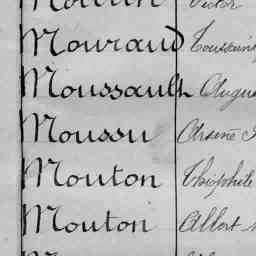 Victor
Mouraud Toussaint
Moussault Augus
Moussu Arsène
Mouton Théophile
Mouton Albert